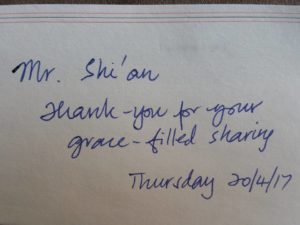 Mr. Shi'an
Thank-you for your
grace-filled sharing
Thursday 20/4/17